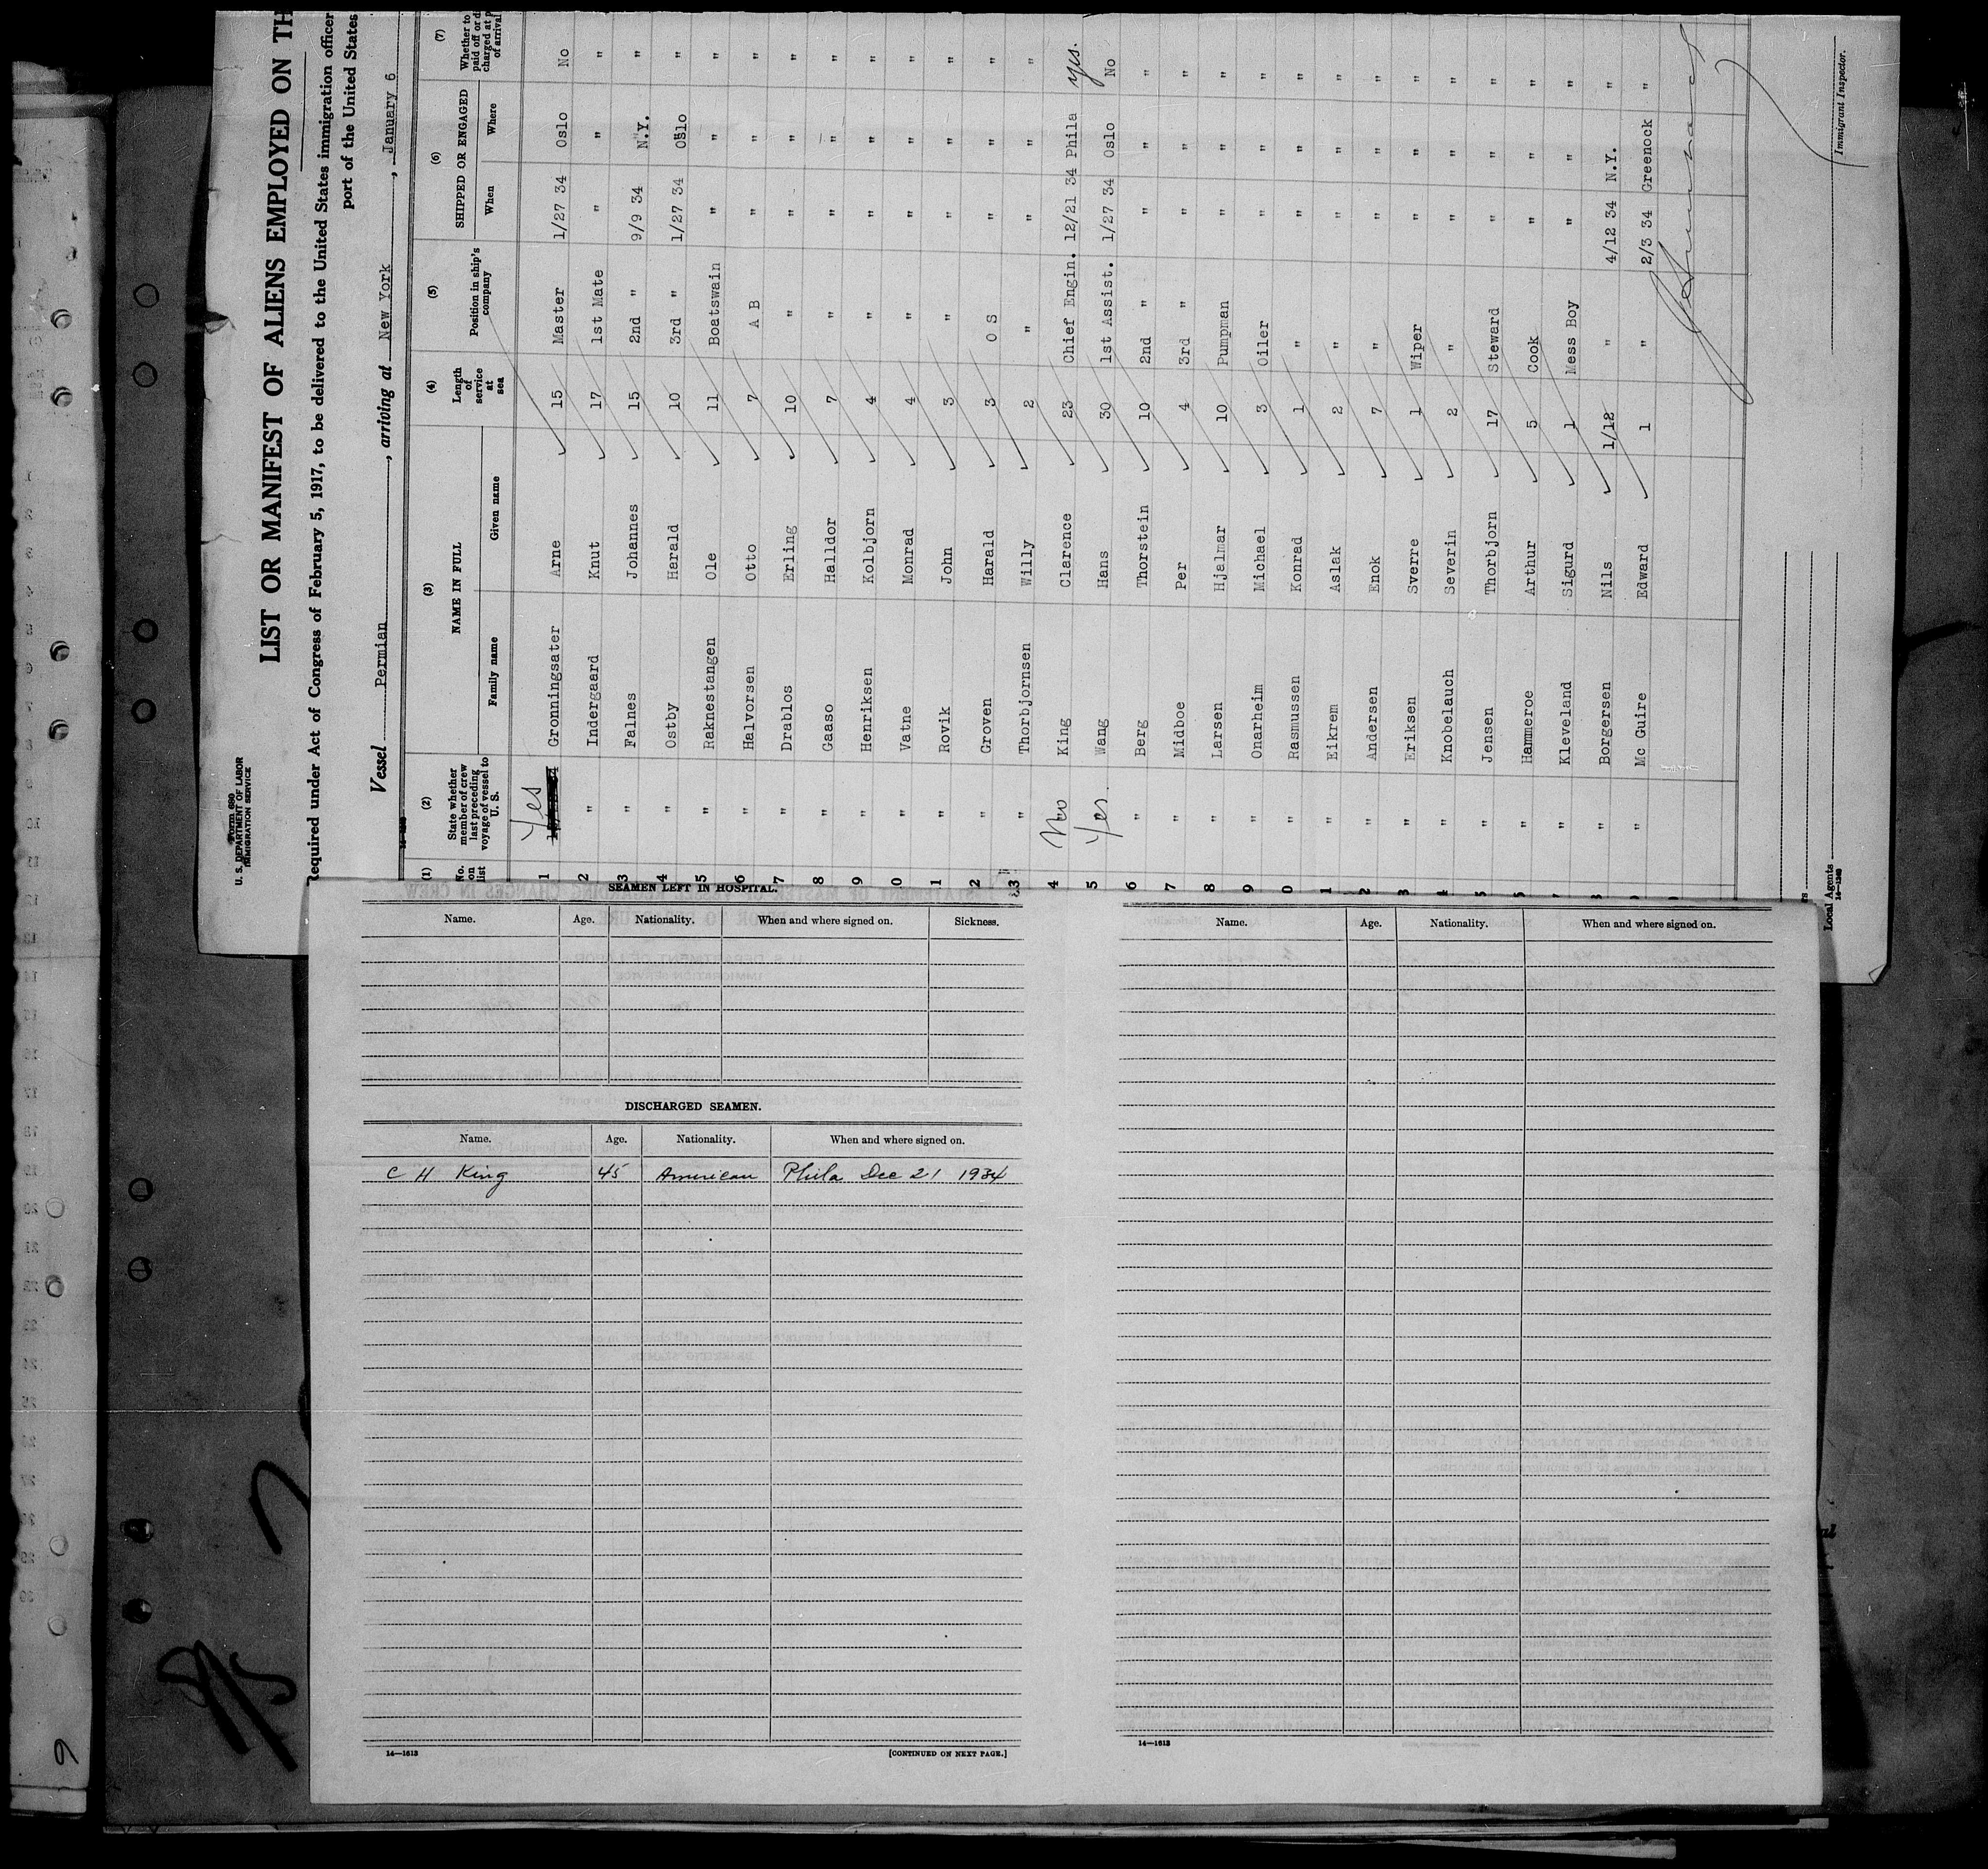 Form 680
U. S. DEPARTMENT OF LABOR
IMMIGRATION SERVICE
LIST OR MANIFEST OF ALIENS EMPLOYED ON TH
Required under Act of Congress of February 5, 1917, to be delivered to the United States immigration officer
port of the United States
Vessel Permian, arriving at New York, January 6
(1) (2) (3) (4) (5) (6) (7)
No. on list State whether member of crew last preceding voyage of vessel to U. S. NAME IN FULL Family name Given name Length of service at sea Position in ship's company SHIPPED OR ENGAGED When Where Whether to paid off or d charged at p of arrival
1 Yes Gronningsater Arne 15 Master 1/27 34 Oslo No
2 " Indergaard Knut 17 1st Mate " " "
3 " Falnes Johannes 15 2nd " 9/9 34 N.Y. "
4 " Ostby Harald 10 3rd " 1/27 34 Oslo "
5 " Raknestangen Ole 11 Boatswain " " "
6 " Halvorsen Otto 7 A B " " "
7 " Drablos Erling 10 " " " "
8 " Gaaso Halldor 7 " " " "
9 " Henriksen Kolbjorn 4 " " " "
0 " Vatne Monrad 4 " " " "
1 " Rovik John 3 " " " "
2 " Groven Harald 3 O S " " "
3 " Thorbjornsen Willy 2 " " " "
4 No King Clarence 23 Chief Engin. 12/21 34 Phila yes.
5 Yes. Wang Hans 30 1st Assist. 1/27 34 Oslo No
6 " Berg Thorstein 10 2nd " " " "
7 " Midboe Per 4 3rd " " " "
8 " Larsen Hjalmar 10 Pumpman " " "
9 " Onarheim Michael 3 Oiler " " "
0 " Rasmussen Konrad 1 " " " "
1 " Eikrem Aslak 2 " " " "
2 " Andersen Enok 7 " " " "
3 " Eriksen Sverre 1 Wiper " " "
4 " Knobelauch Severin 2 " " " "
5 " Jensen Thorbjorn 17 Steward " " "
6 " Hammeroe Arthur 5 Cook " " "
" Kleveland Sigurd 1 Mess Boy " " "
" Borgersen Nils 1/12 " 4/12 34 N.Y. "
" Mc Guire Edward 1 " 2/3 34 Greenock "
Immigrant Inspector.
Local Agents
SEAMEN LEFT IN HOSPITAL.
Name. Age. Nationality. When and where signed on. Sickness.
DISCHARGED SEAMEN.
Name. Age. Nationality. When and where signed on.
C H King 45 American Phila Dec 21 1934
14—1613
[CONTINUED ON NEXT PAGE.]
Name. Age. Nationality. When and where signed on.
14—1613
9